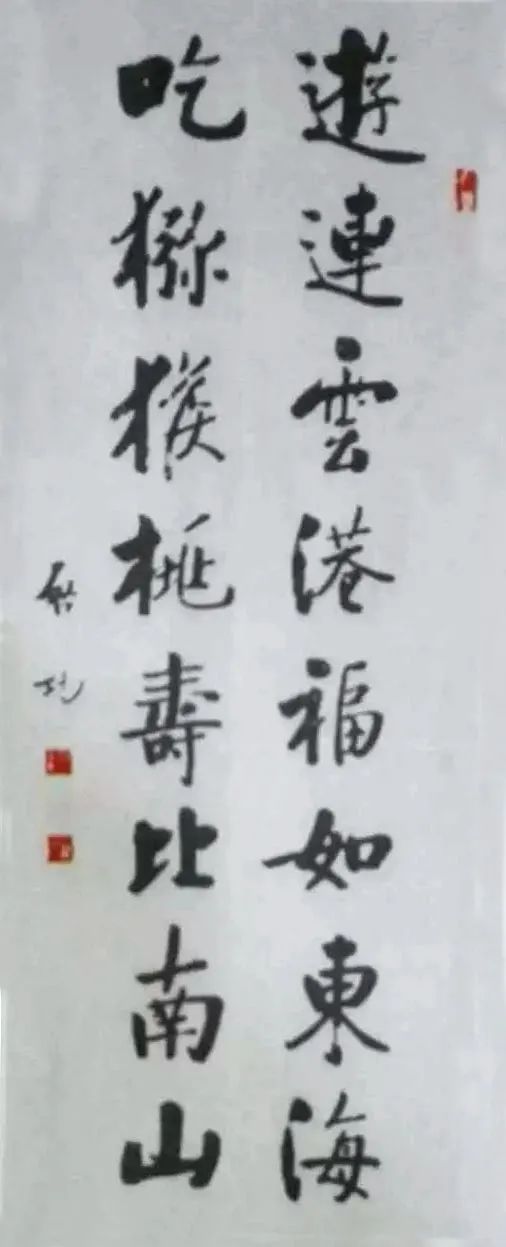 遊連雲港福如東海
吃猕猴桃壽比南山
啟功